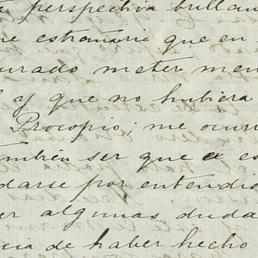 perspectiva brillan
me estrañaria que en
urado meter men
y que no hubiera
Procopio; me ocurr
tambien ser que a es
darse por entendid
er algunas duda
cia de haber hecho